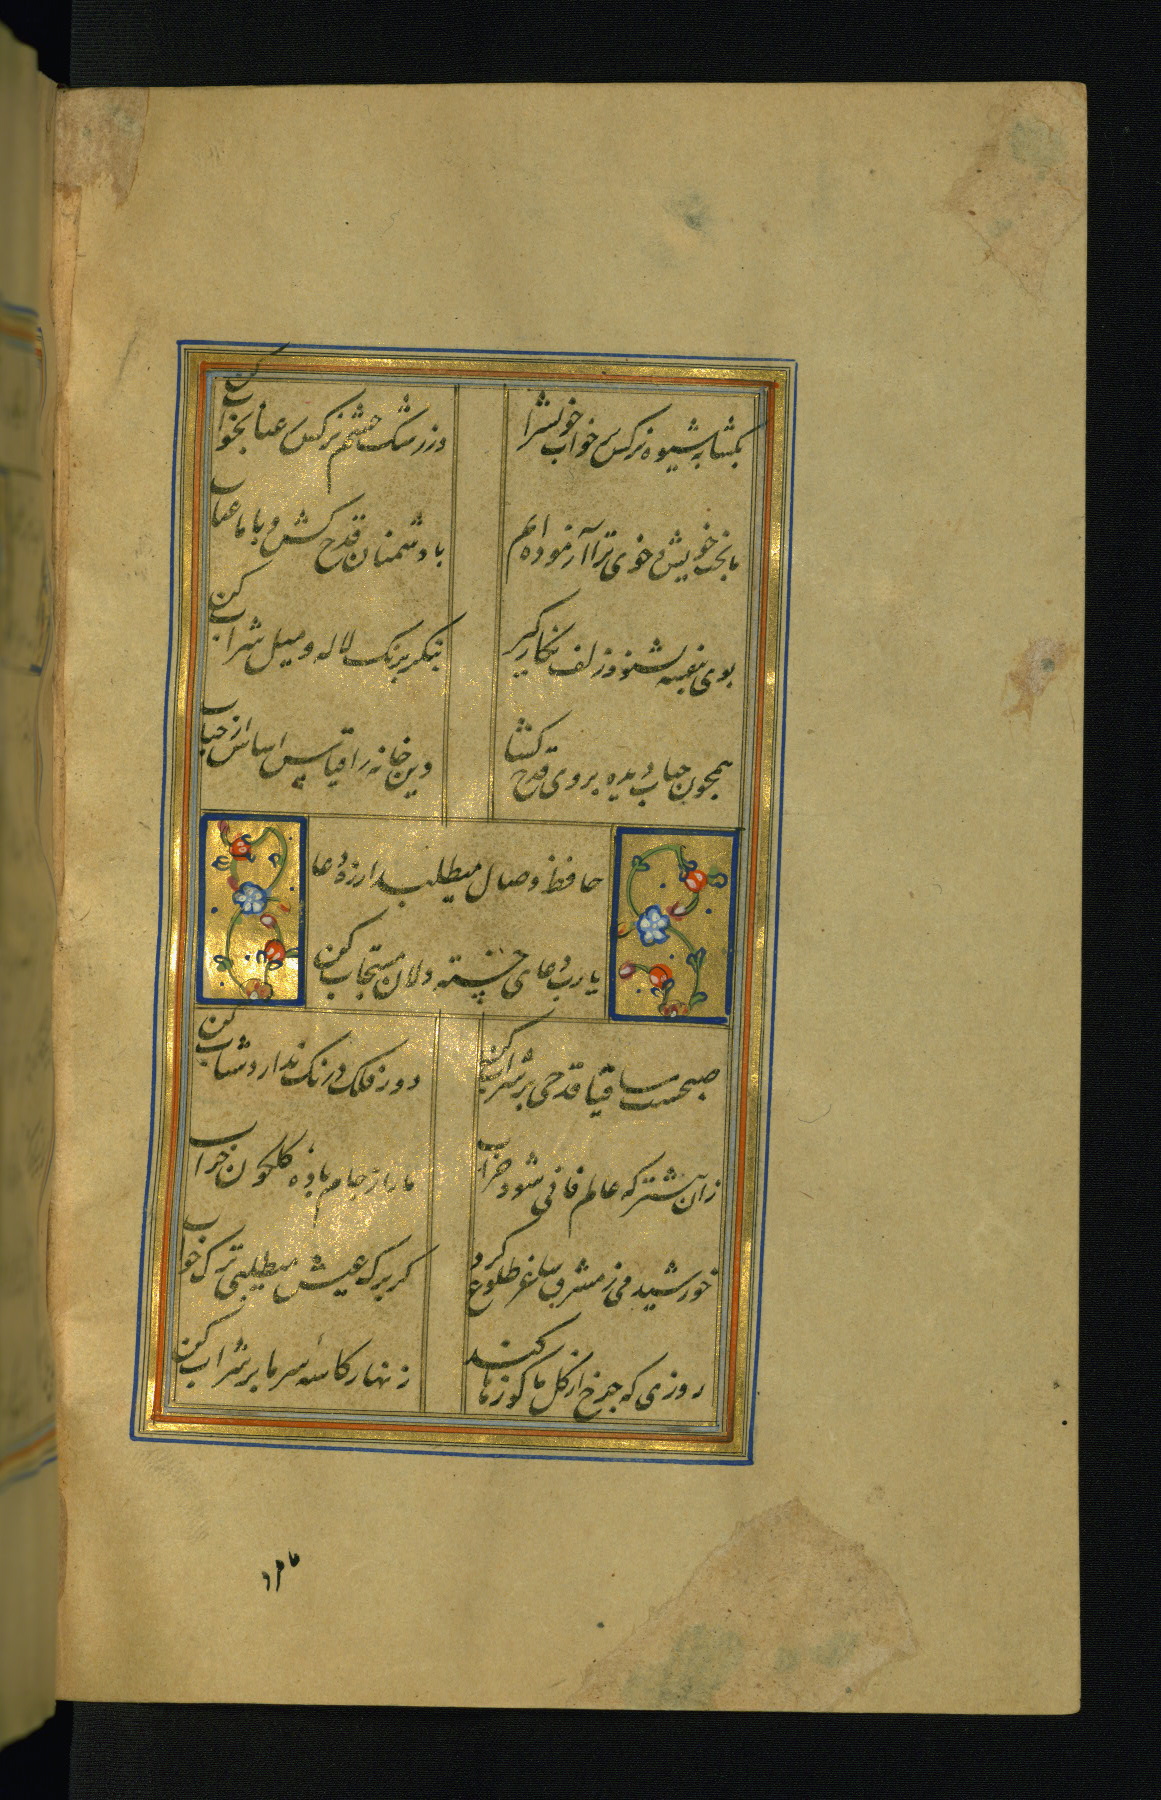 بکشا بشیوه نرکس خواب خویشرا
وز رشک چشم نرکس رعنا بخواب کن
ما بخت خویش و خوی ترا آزموده ایم
با دشمنان قدح کش و با ما عتاب
بوی بنفشه بشنو و زلف نکار کیر
بنکر برنک لاله و میل شراب کن
همچون حباب دیده بروی قدح کشا
وین خانه را قیاس اساس از حباب
حافظ وصال میطلبد از ره دعا
یا رب دعای خسته دلان مستجاب کن
صبحست ساقیا قدحی پر شراب کن
دور فلک درنک ندارد شتاب کن
زان پیشتر که عالم فانی شود خراب
ما را ز جام باده کلکون خراب
خورشید می ز مشرق ساغر طلوع کرد
کر برک عیش میطلبی ترک خواب
روزی که چرخ از کل ما کوزها کند
زنهار کاسه سر ما پر شراب کن